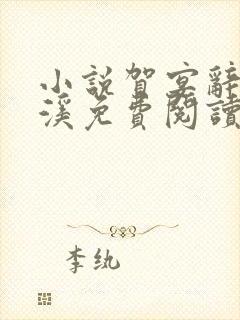 小說賀宴辭
溪免費閱讀
李紈